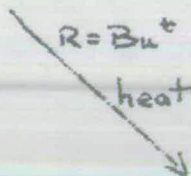 R = Buᵗ
heat